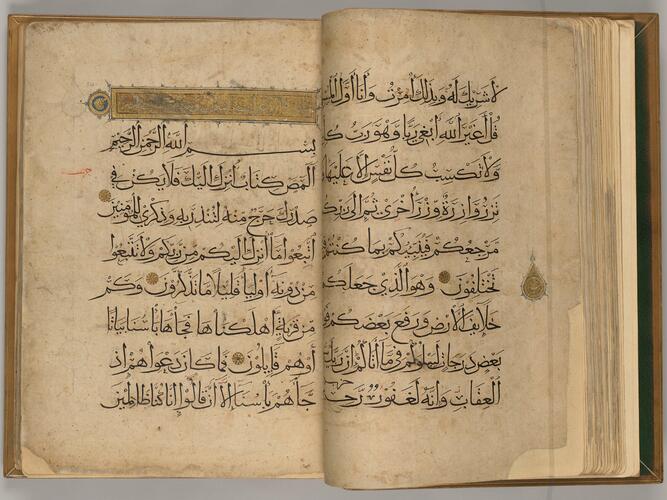 لا شريك له وبذلك امرت وانا اول
قل اغير الله ابغي ربا وهو رب
ولا تكسب كل نفس الا عليها
تزر وازرة وزر اخرى ثم الى
مرجعكم فينبئكم بما كنتم
تختلفون وهو الذي جعلكم
خلايف الارض ورفع بعضكم
بعض درجات ليبلوكم في ما اتاكم ان ربك
العقاب وانه لغفور
بسم الله الرحمن الرحيم
المص كتاب انزل اليك فلا يكن في
صدرك حرج منه لتنذر به وذكرى للمؤمنين
اتبعوا ما انزل اليكم من ربكم ولا تتبعوا
من دونه اوليا قليلا ما تذكرون وكم
من قرية اهلكناها فجاها باسنا بياتا
او هم قايلون فما كان دعواهم اذ
جاهم باسنا الا ان قالوا انا كنا ظالمين